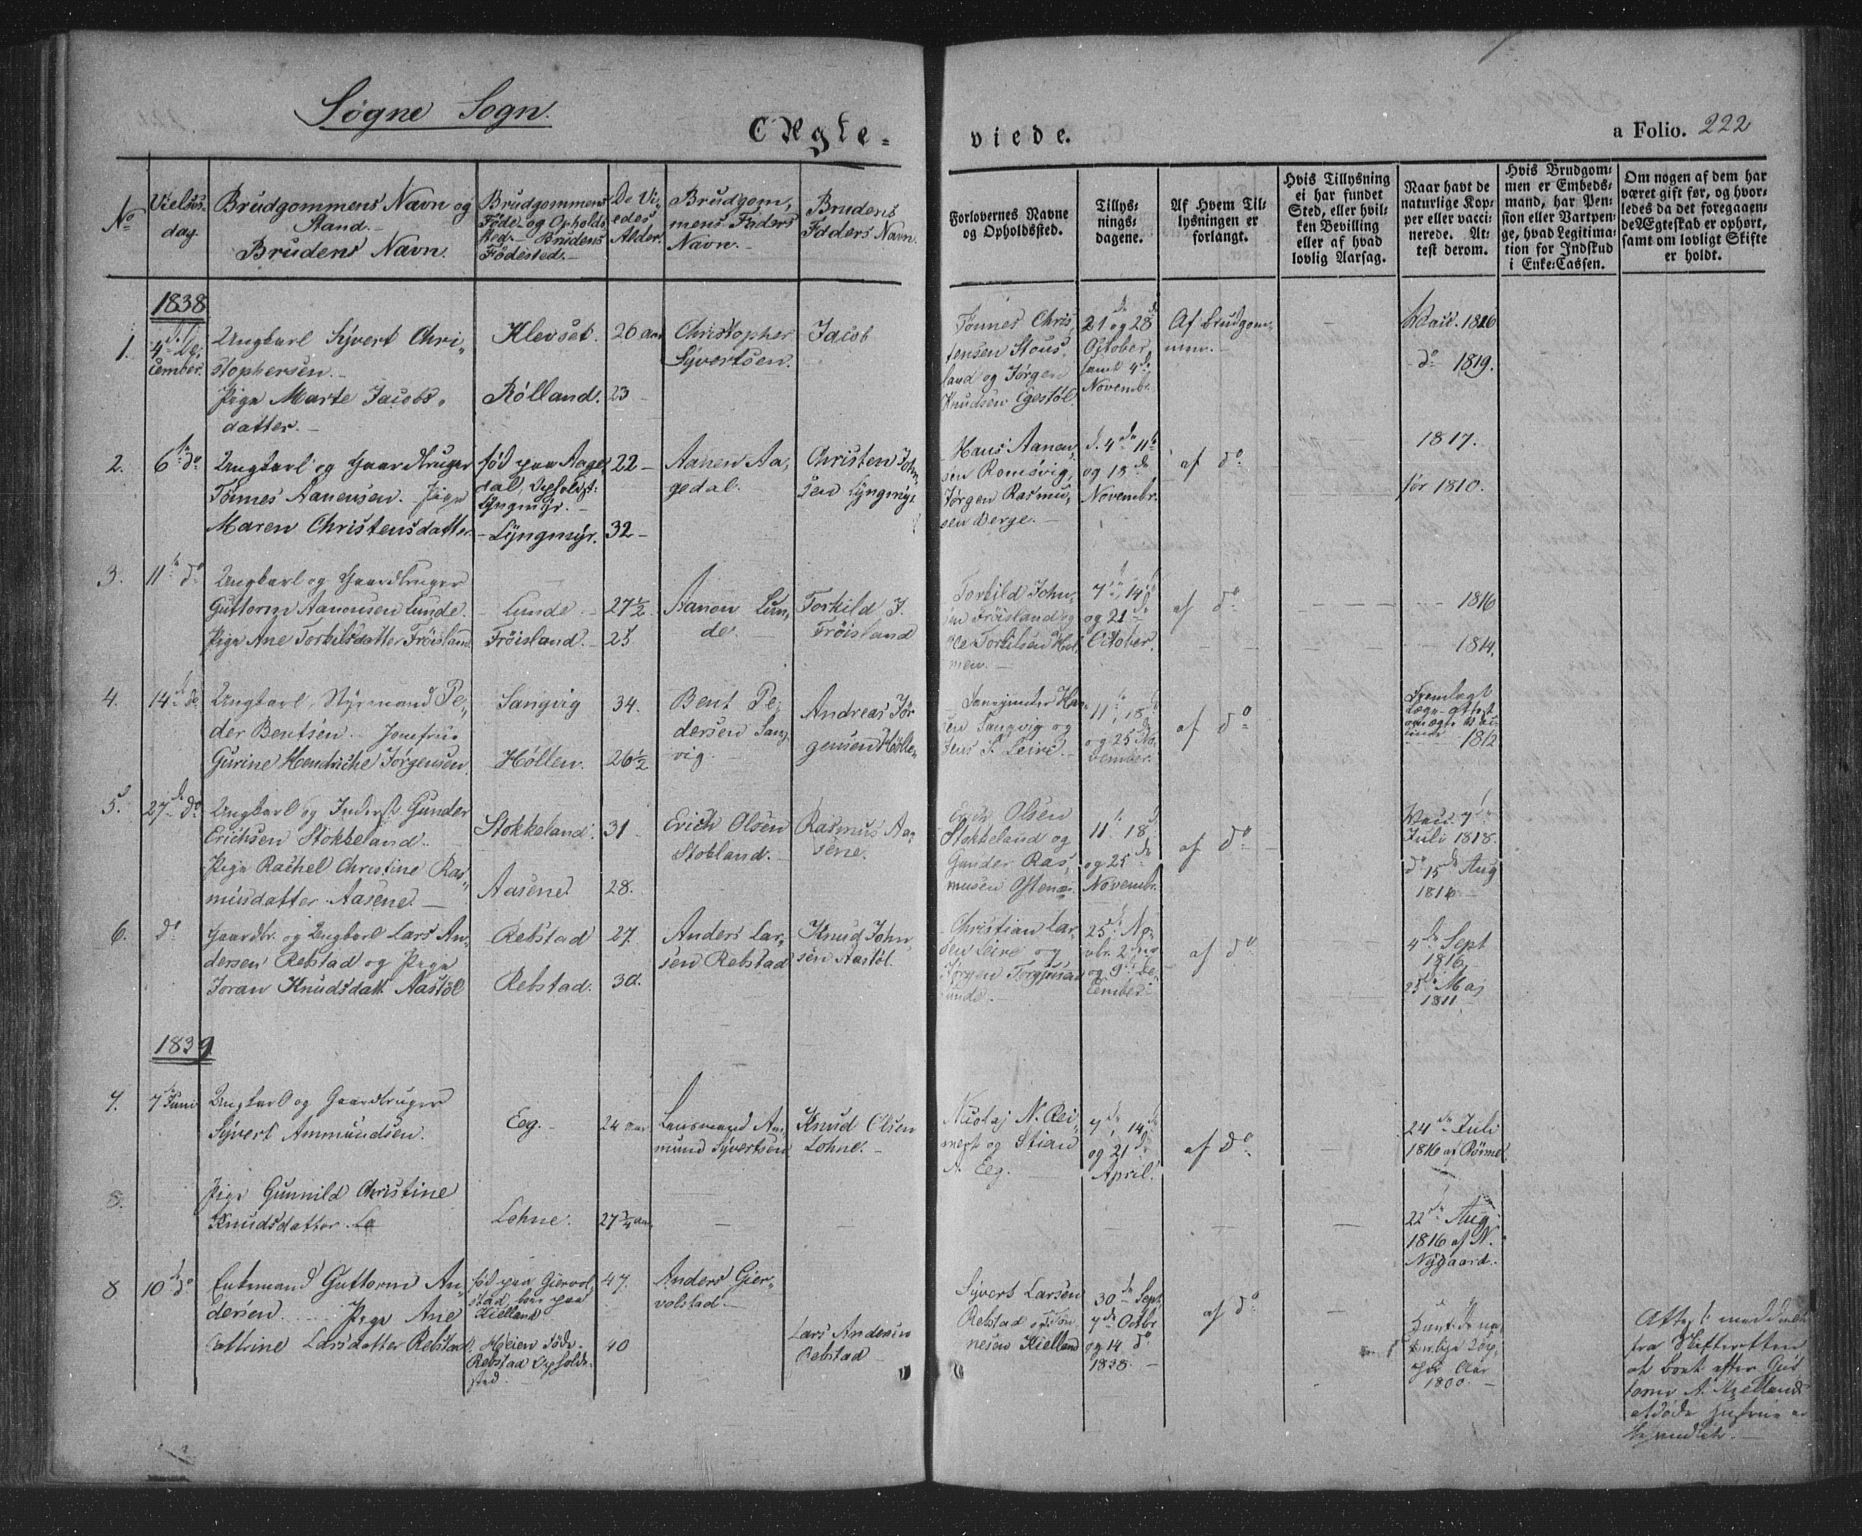 Søgne Sogn.
Ægte-
viede.
a Folio. 222
No
Vielses-
dag.
Brudgommens Navn og
Stand.-
Brudens Navn.
Brudgommens
Føde- og Opholds-
sted- Brudens
Fødested.-
De Vi-
edes
Alder.
Brudgom-
mens Faders
Navn.-
Brudens
Faders Navn.
Forlovernes Navne
og Opholdssted.
Tillys-
nings-
dagene.
Af Hvem Til-
lysningen er
forlangt.
Hvis Tillysning
ei har fundet
Sted, eller hvil-
ken Bevilling
eller af hvad
lovlig Aarsag.
Naar havt de
naturlige Kop-
per eller vacci-
nerede. At-
test derom.
Hvis Brudgom-
men er Embeds-
mand, har Pen-
sion eller Vartpen-
ge, hvad Legitima-
tion for Indskud
i Enke-Cassen.
Om nogen af dem har
været gift før, og hvor-
ledes da det foregaaen-
de Ægteskab er ophørt,
samt om lovligt Skifte
er holdt.
1838
1.
4de De-
cember.
Ungkarl Syvert Chri-
stophersen.-
Pige Marte Jacobs-
datter.-
Klevset.
Rølland.
26 aar
23 -
Christopher
Syvertsen.
Jacob
Tønnes Chris-
tensen Stous-
land og Jørgen
Knudsen Egestøl.
21 og 28
October
samt 4de
Novembr.
Af Brudgom-
men.-
1816
do 1819.
2.
6te do
Ungkarl og Gaardbruger
Tønnes Aanensen. Pige
Maren Christensdatter
fød paa Aage-
dal, Opholdst:
Lyngmyr.-
- Lyngmyr.
22 -
32 -
Aanen Aa-
gedal.
Christen Joh-
sen Lyngmyr
Hans Aanen-
sen Romsvig,
Jørgen Rasmu-
sen Berge.-
d. 4de 11te
og 18de
Novembr.
af do
1817.
før 1810.
3.
11te do
Ungkarl og Gaardbruger
Guttorm Aanonsen Lunde.
Pige Ane Torkilsdatter Frøisland
- Lunde -
Frøisland.-
27½
25
Aanon Lun-
de.
Torkild J.
Frøisland
Torkild John-
sen Frøisland og
Ole Torkilsen Hol-
men.-
7de, 14de
og 21de
October.
af do
1816
1814.
4.
14de do
Ungkarl, Styrmand Pe-
der Bentsen. Jomfru
Gurine Hendriche Jørgensen
Langvig
Høllen.
34.
26½
Bent Pe-
dersen Lang-
vig.-
Andreas Jør-
gensen Hølle-
Langvig og
Jens S. Leire.-
11te, 18de
og 25 No-
vember.
af do
Fremlagt
1812
5.
27de do
Ungkarl og Inderst Gunder
Erichsen Stokkeland.
Pige Rachel Christine Ras-
musdatter Aasene -
Stokkeland.
Aasene
31.
28.
Erich Olsen
Stokland.
Rasmus Aa-
sene.
Erich Olsen
Stokkeland og
Gunder Ras-
musen
11te 18de
og 25de
Novembr.
af do
Vacc. 7de
Juli 1818.
do 15de Aug
1816
6.
do
Gaardbr. og Ungkarl Lars An-
dersen Rebstad og Pige
Joran Knudsdatt. Aastøl
Rebstad
Rebstad.
27.
30.
Anders Lar-
sen Rebstad
Knud John-
sen Aastøl.
Christian Lar-
sen Leire og
Jørgen Torgjusen
Lunde.-
25de No-
vbr. 2den
og 9de De-
cember
af do
4de Sept
1816
25de Maj
1811
1839
7.
7de Juni
Ungkarl og Gaardbruger
Syvert Ammundsen.
Eeg.-
24 aar
Lensmand Am-
mund Syvertsen
Knud Olsen
Lohne.-
N. Rei-
nert og Stian
A. Eeg.
7de, 14de
og 21de
April.
af do
24de Juli
1816 af Rømer
8.
Pige Gunnild Christine
Knudsdatter. Lo
Lohne.
27¾ aar
22de Aug
1816 af N.
Nygaard.
8
10de do
Enkemand Guttorm An-
dersen. Pige Ane
Cathrine Larsdatter Rebstad
fød paa Giervol-
stad boer paa
Kielland
Heien Føde-
Rebstad Opholds-
sted.-
47.
40
Anders Gier-
volstad.-
Lars Andersen
Rebstad
Syvert Larsen
Rebstad og Tøn-
nes Kielland
30te Sept
7de Octbr
og 14 do
1838.-
af do
Havt de na-
turlige Kop-
per Aar
1800.-
Attest meddeelt
fra Skifteretten
at Boet efter Gut-
torm A. Kiellands
afdøde Hustrue er